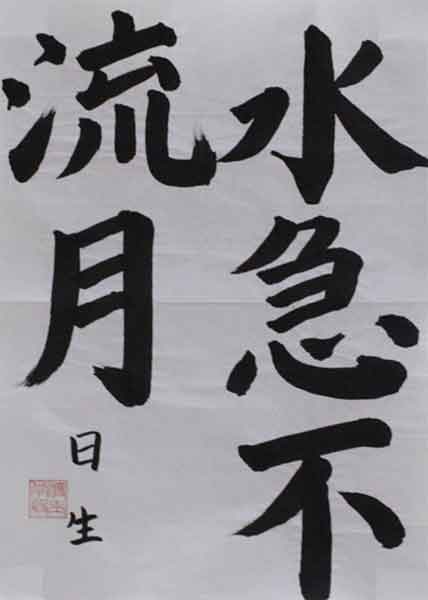 水急不
流月
日生